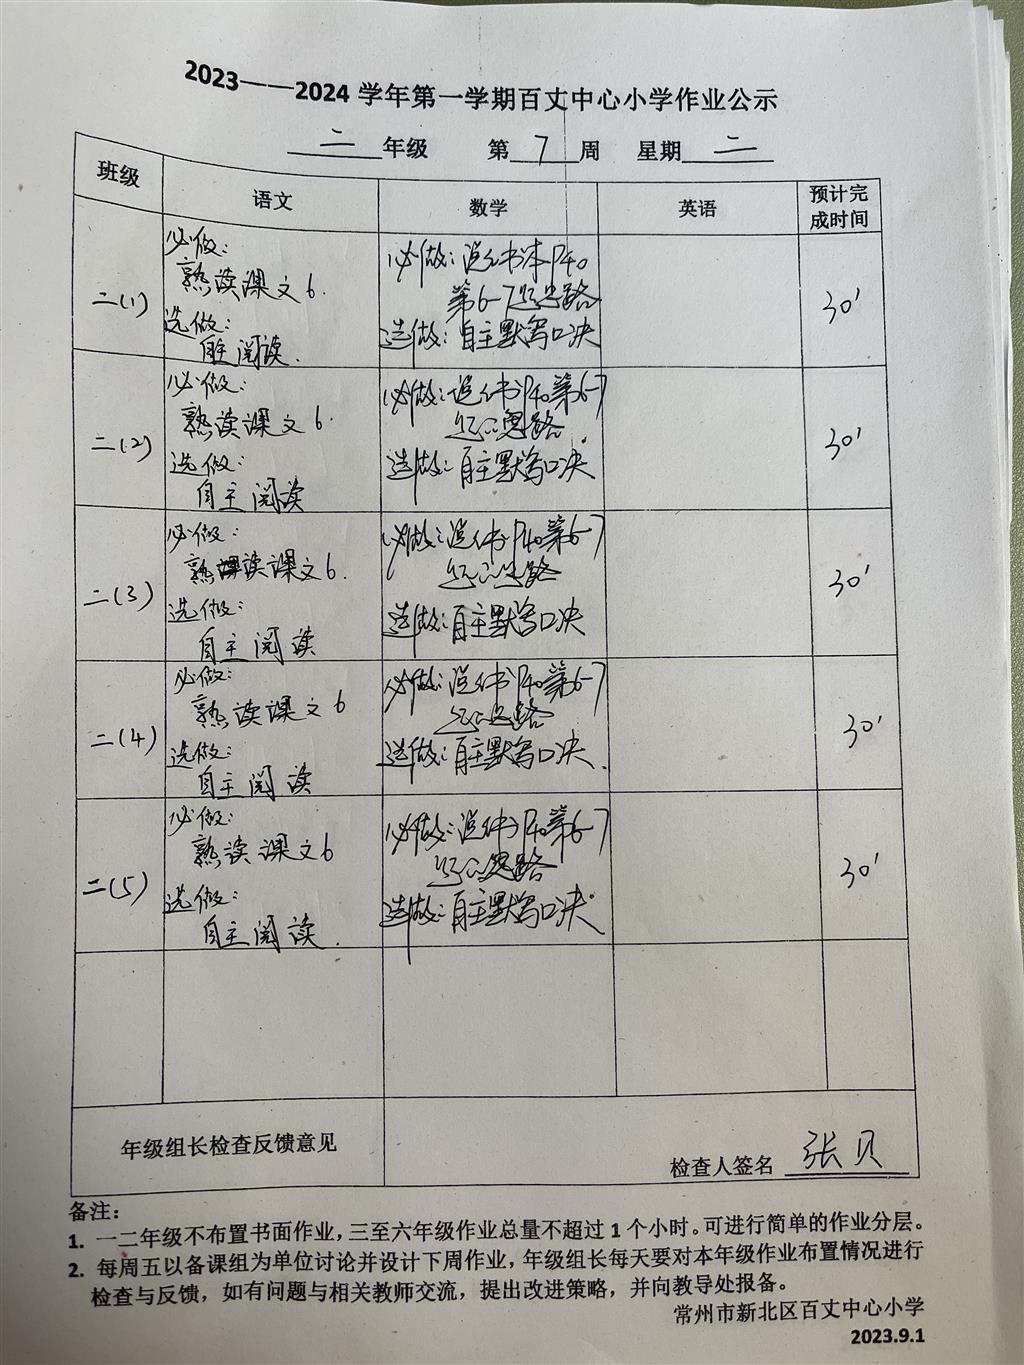 2023——2024 学年第一学期百丈中心小学作业公示
二 年级 第 7 周 星期 二
班级 语文 数学 英语 预计完成时间
二(1)
必做:
熟读课文6.
选做:
自主阅读.
必做:说书本P40
第6-7题思路
选做:自主默写口决
30'
二(2)
必做:
熟读课文6.
选做:
自主阅读
必做:说书P40第6-7
题思路.
选做:自主默写口决
30'
二(3)
必做:
熟读课文6.
选做:
自主阅读
必做:说书P40第6-7
题思路
选做:自主默写口决
30'
二(4)
必做:
熟读课文6
选做:
自主阅读
必做:说书P40第6-7
题思路
选做:自主默写口决.
30'
二(5)
必做:
熟读课文6
选做:
自主阅读.
必做:说书P40第6-7
题思路
选做:自主默写口决.
30'
年级组长检查反馈意见
检查人签名 张贝
备注:
1. 一二年级不布置书面作业,三至六年级作业总量不超过 1 个小时。可进行简单的作业分层。
2. 每周五以备课组为单位讨论并设计下周作业,年级组长每天要对本年级作业布置情况进行
检查与反馈,如有问题与相关教师交流,提出改进策略,并向教导处报备。
常州市新北区百丈中心小学
2023.9.1